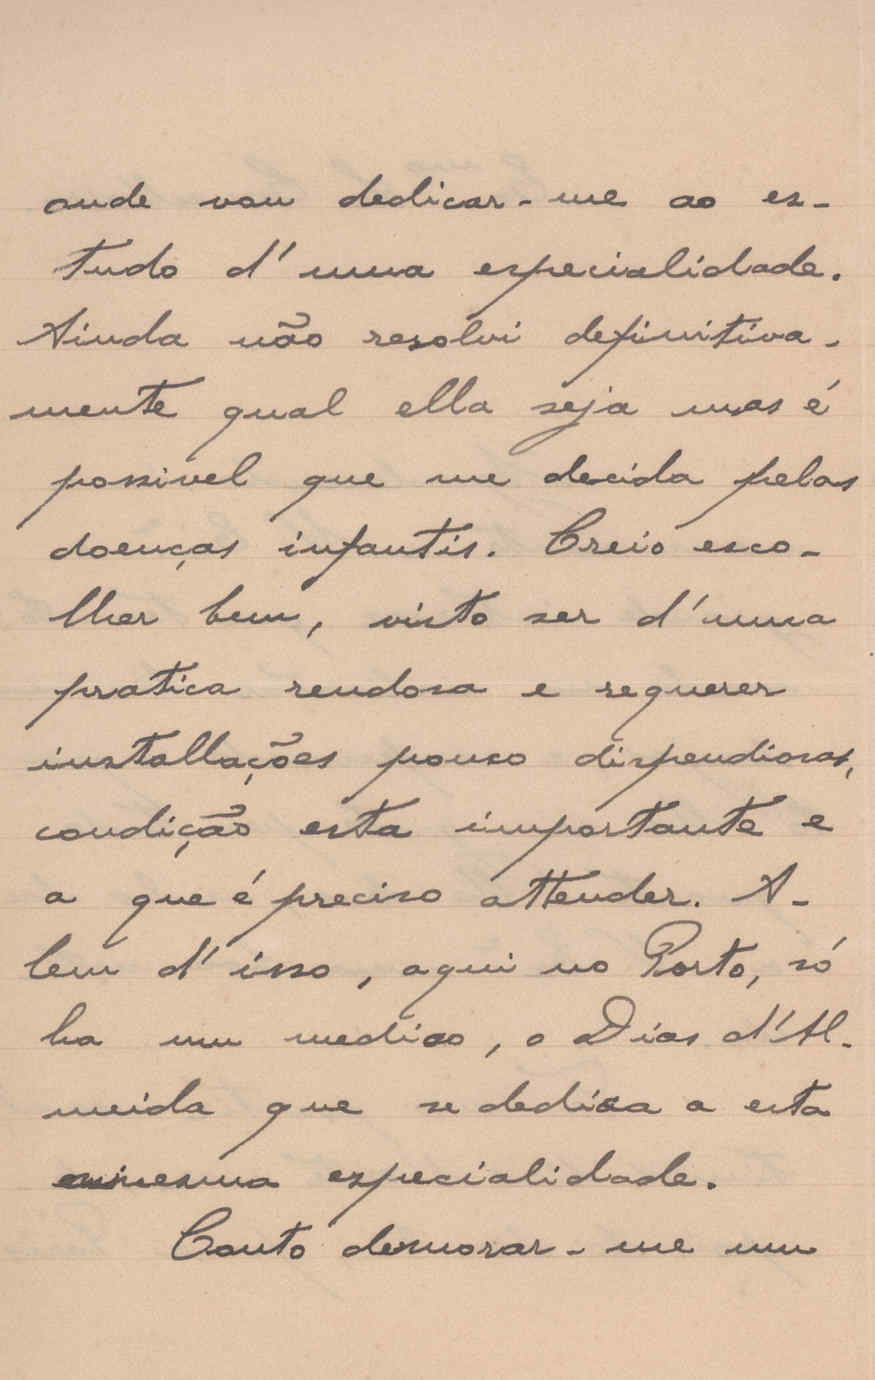 onde vou dedicar-me ao es-
tudo d'uma especialidade.
Ainda não resolvi definitiva-
mente qual ella seja mas é
possivel que me decida pelas
doenças infantis. Creio esco-
lher bem, visto ser d'uma
pratica rendosa e requerer
installações pouco dispendiosas,
condição esta importante e
a que é preciso attender. A-
lem d'isso, aqui no Porto, só
ha um medico, o Dias d'Al-
meida que se dedica a esta
mesma especialidade.
Conto demorar-me um